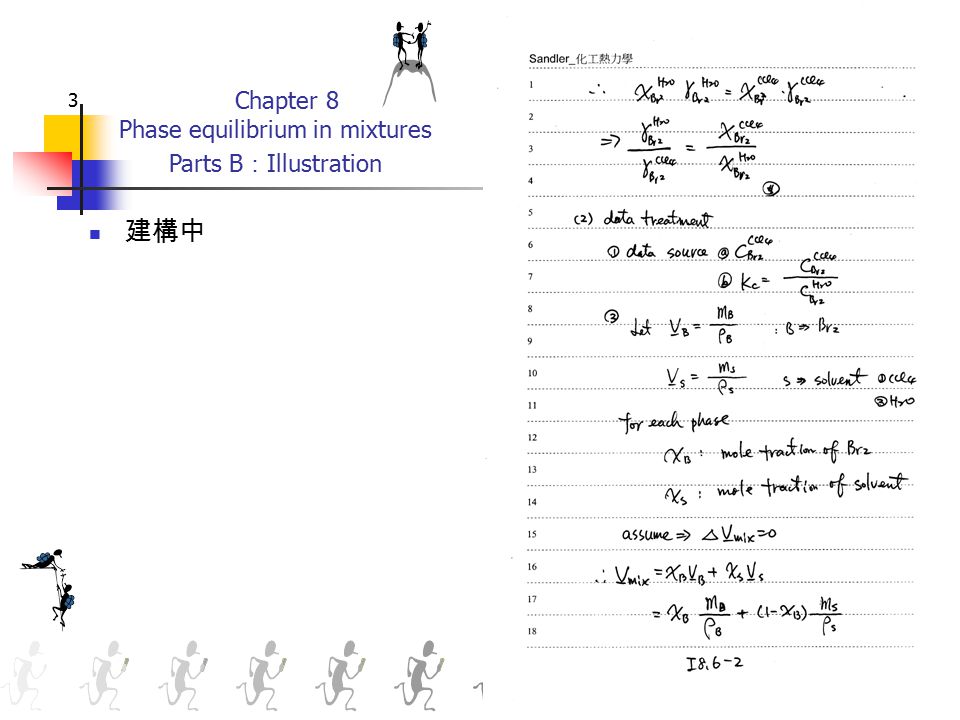 3
Chapter 8
Phase equilibrium in mixtures
Parts B：Illustration
建構中
Sandler_化工熱力學
1
∴ x_{Br2}^{H2O} γ_{Br2}^{H2O} = x_{Br2}^{CCl4} · γ_{Br2}^{CCl4}
2
3
⇒ γ_{Br2}^{H2O} / γ_{Br2}^{CCl4} = x_{Br2}^{CCl4} / x_{Br2}^{H2O}
4
5
(2) data treatment
6
① data source ⓐ C_{Br2}^{CCl4}
7
ⓑ Kc = C_{Br2}^{CCl4} / C_{Br2}^{H2O}
8
③ Let V_B = m_B / ρ_B : B ⇒ Br2
9
10
V_s = m_s / ρ_s s ⇒ solvent ① CCl4
11
② H2O
for each phase
12
x_B : mole fraction of Br2
13
x_s : mole fraction of solvent
14
15
assume ⇒ ΔV_mix = 0
16
∴ V_mix = x_B V_B + x_s V_s
17
= x_B m_B / ρ_B + (1 - x_B) m_s / ρ_s
18
I8.6-2